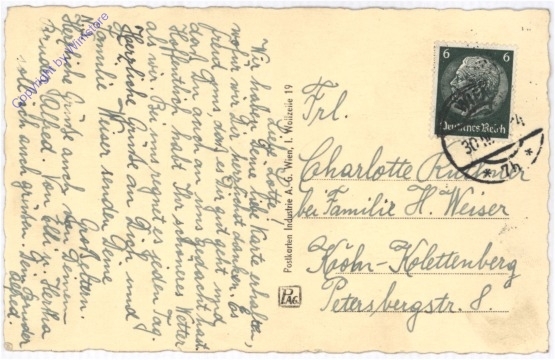 Liebe Lotte!
Wir haben Deine liebe Karte erhalten,
wofür wir Dir herzlichst danken. Es
freut uns, dass es Dir gut geht und
dass Du an uns gedacht hast.
Hoffentlich habt Ihr schöneres Wetter
als wir. Bei uns regnet es jeden Tag.
Herzliche Grüße an Dich und
Familie Weiser senden Deine
Großeltern.
Herzliche Grüße auch von Deinem
Bruder Alfred. von Elli u. Herta
soll ich auch grüßen. Dein Bruder
Alfred.
Postkarten Industrie A.-G. Wien, I. Wollzeile 19
PIAG
6 6
Deutsches Reich
WIEN
30.III.
Frl.
Charlotte
bei Familie H. Weiser
Krohn-Kolettenberg
Petersbergstr. 8.
Copyright by Wimstore